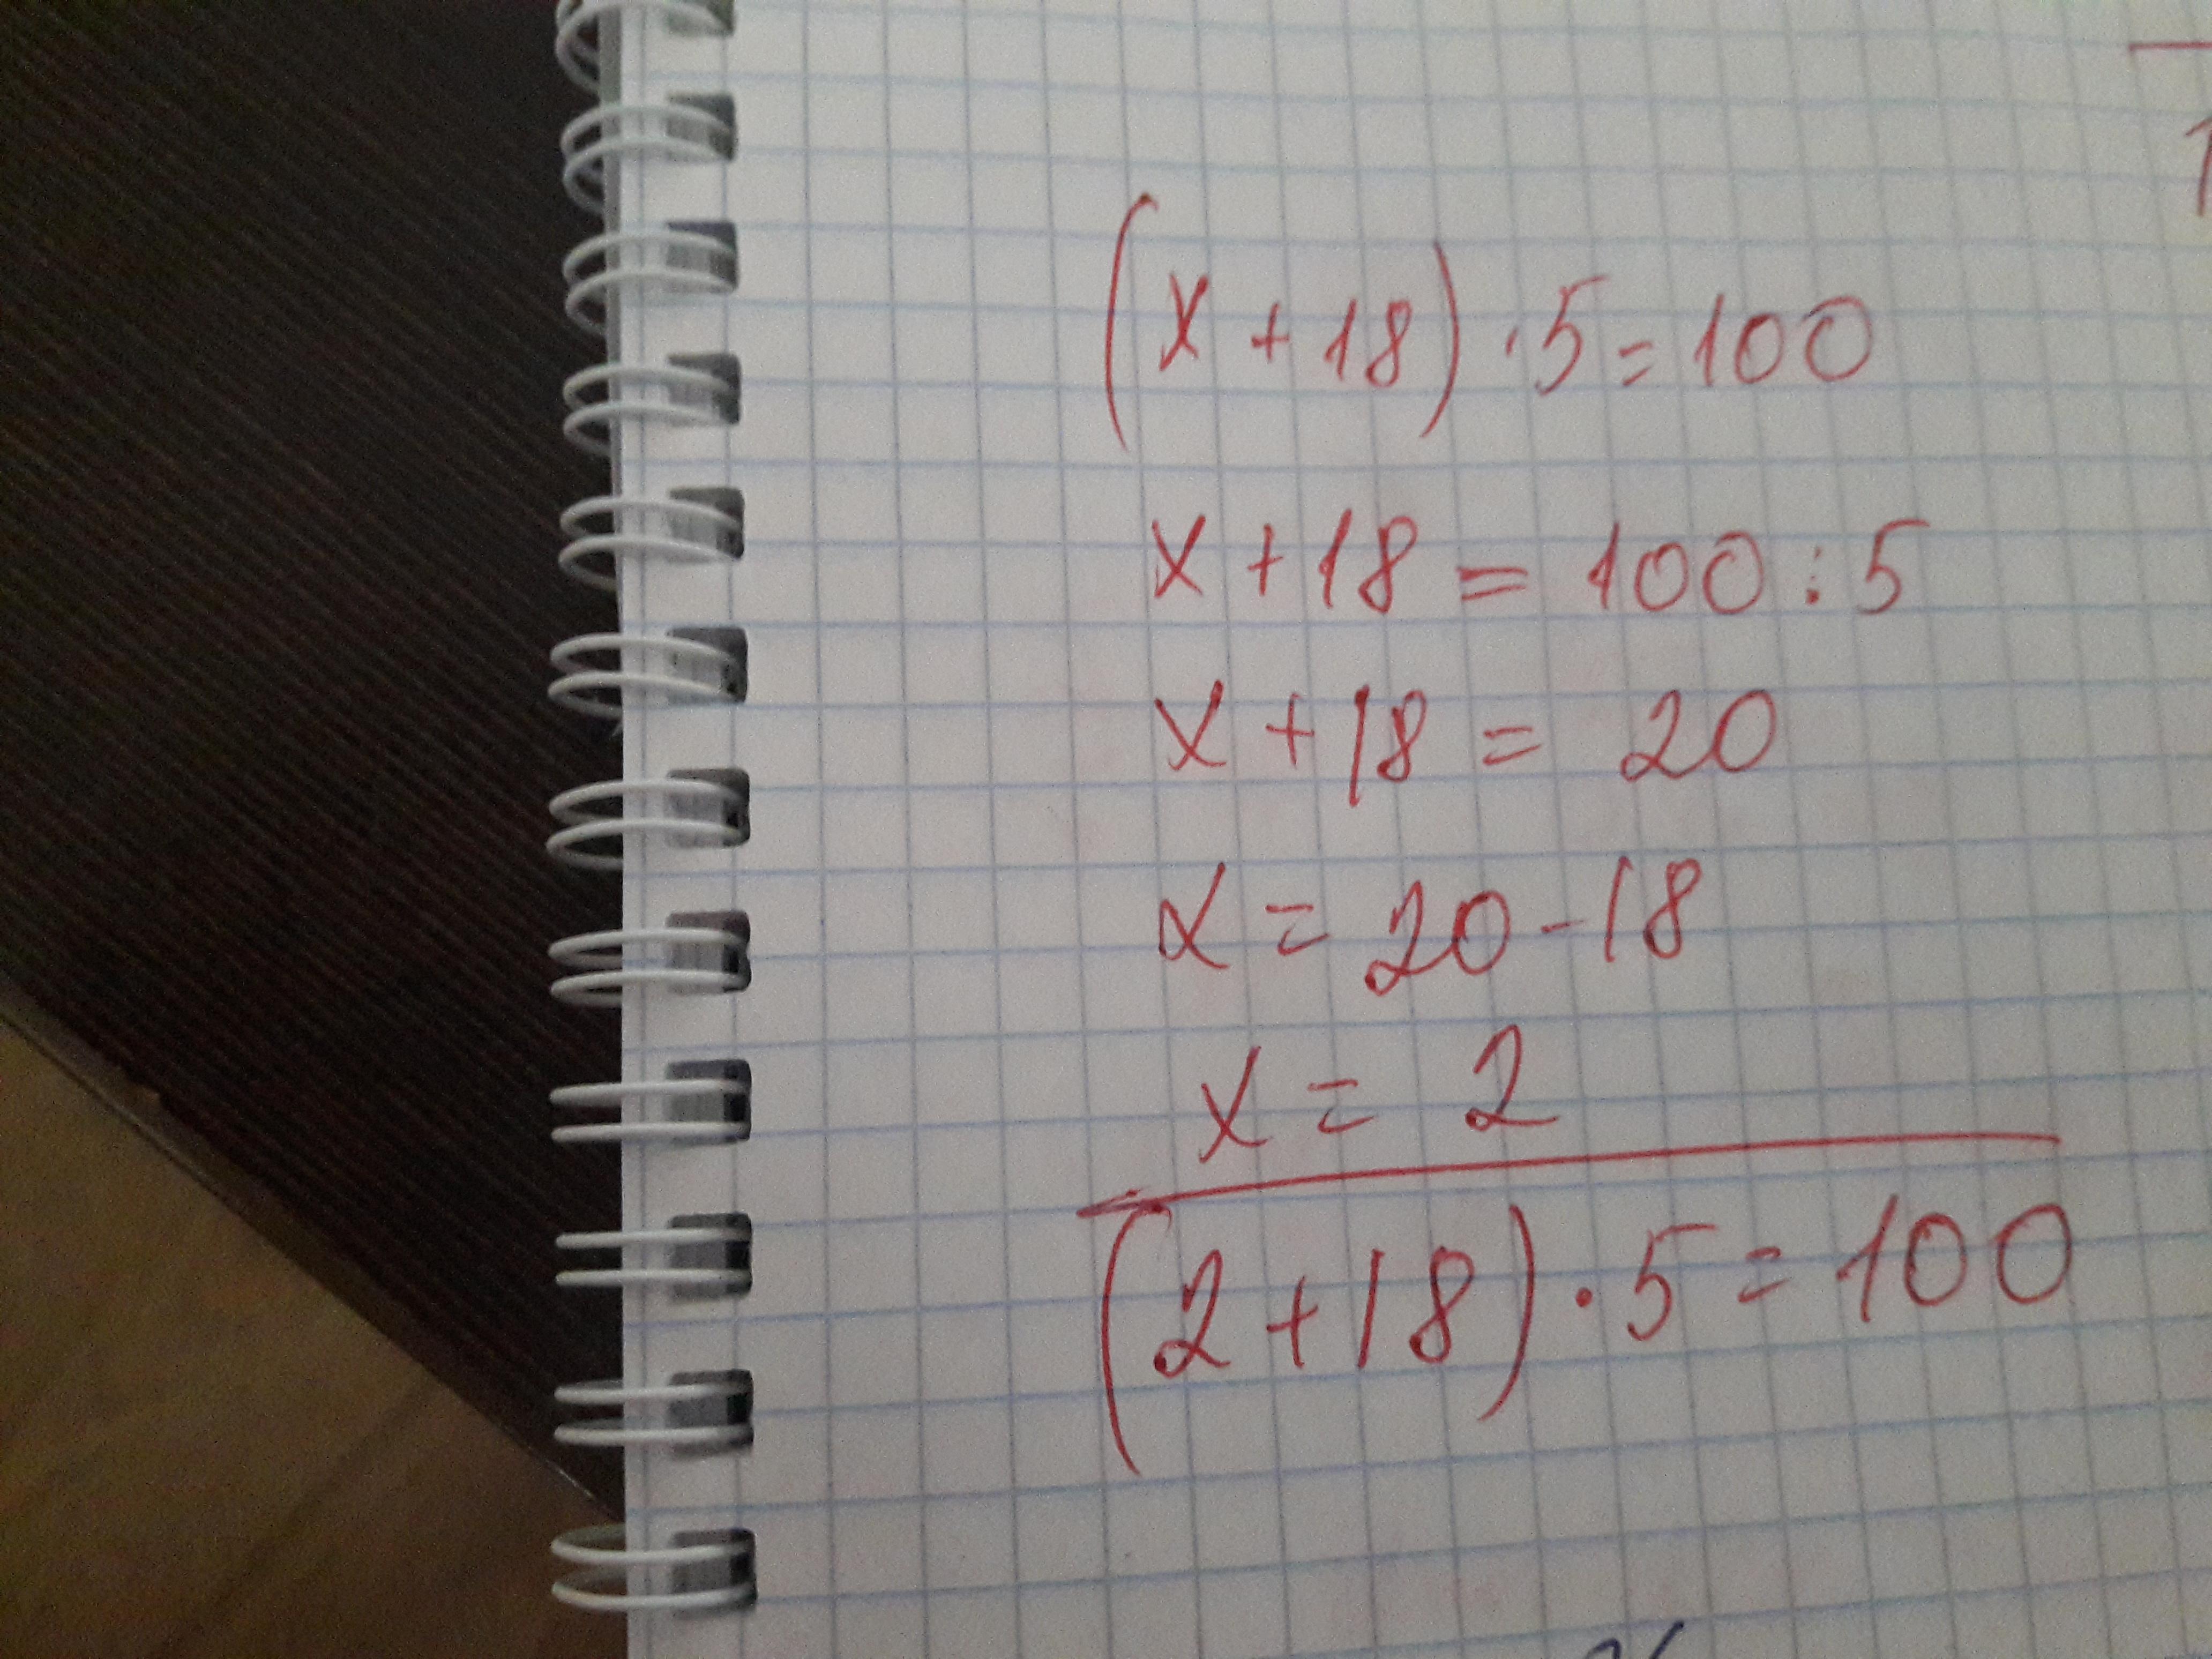 (x + 18) · 5 = 100
x + 18 = 100 : 5
x + 18 = 20
x = 20 - 18
x = 2
(2 + 18) · 5 = 100